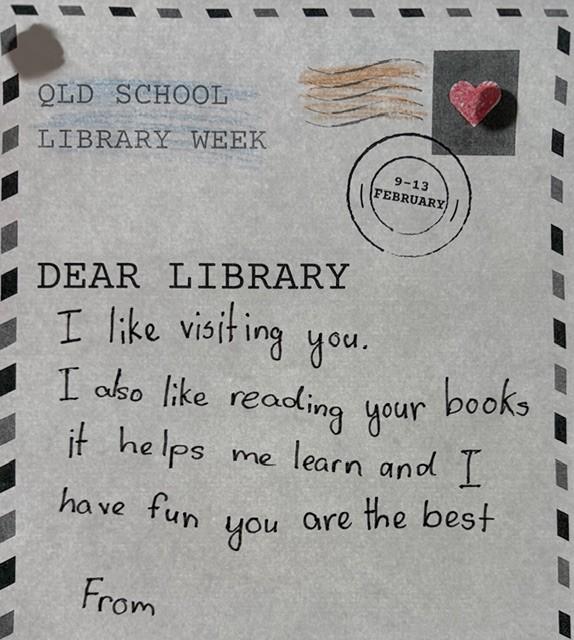 QLD SCHOOL
LIBRARY WEEK
9-13
FEBRUARY
DEAR LIBRARY
I like visiting you.
I also like reading your books
it helps me learn and I
have fun you are the best
From